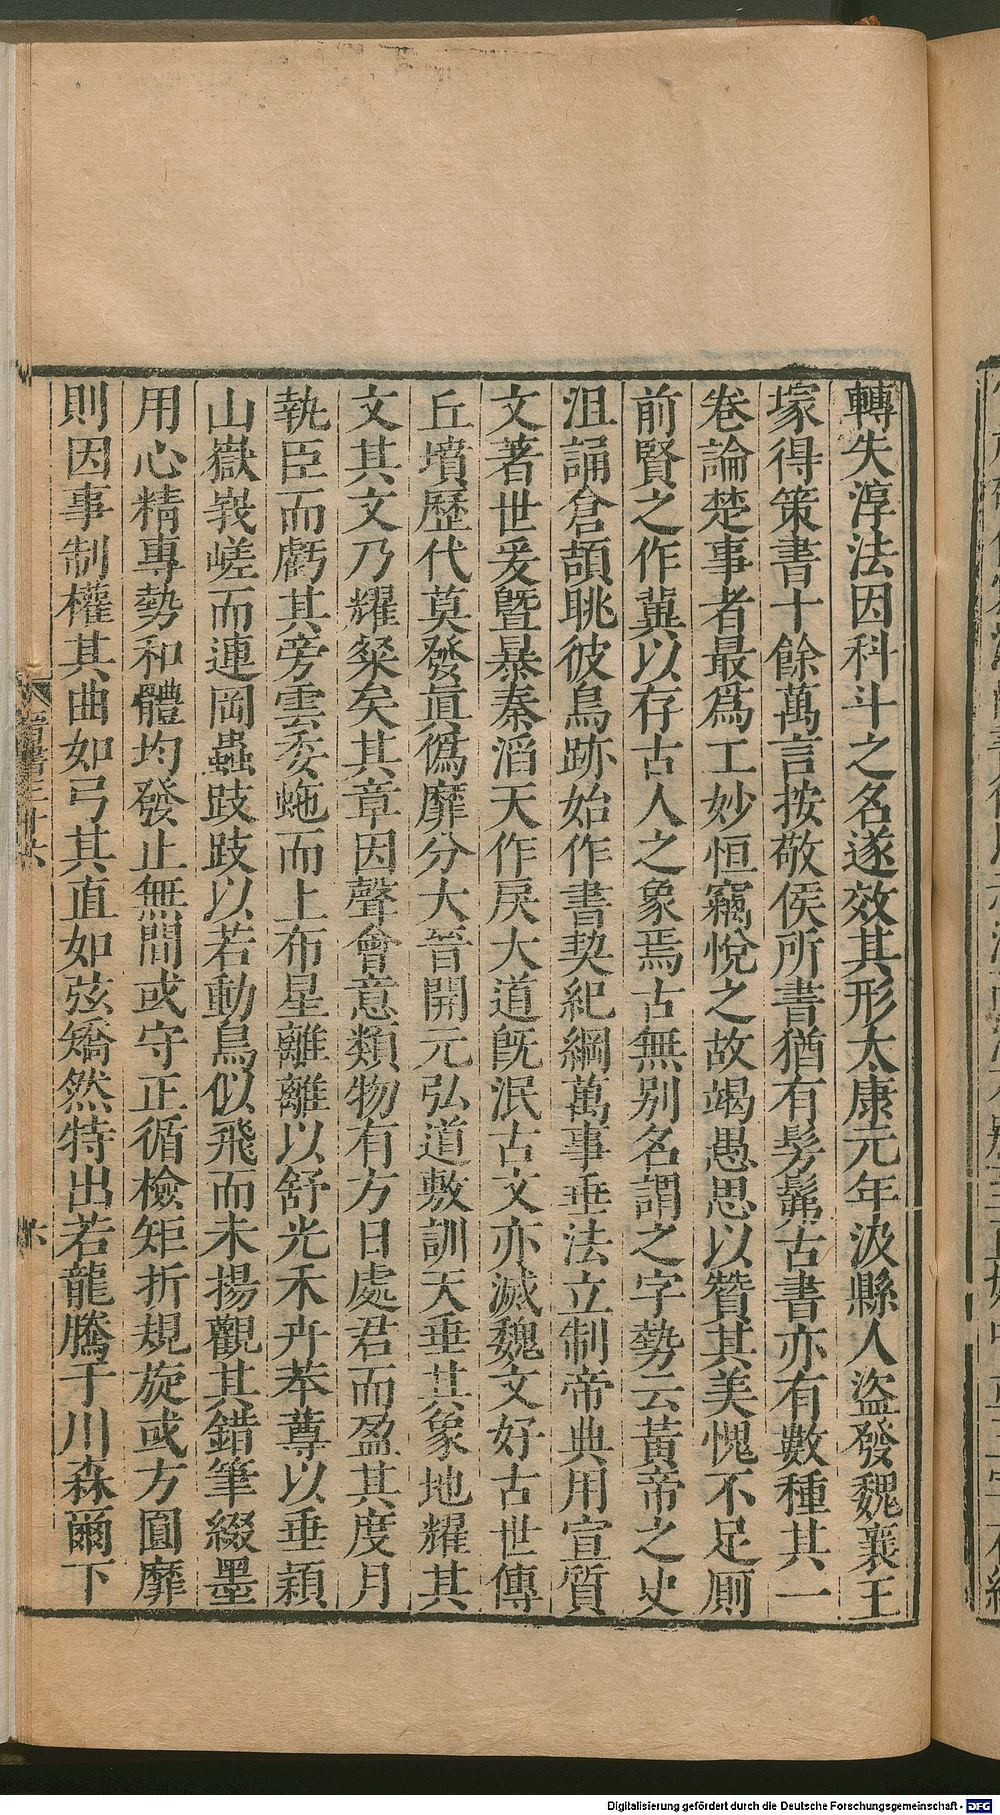 轉失淳法因科斗之名遂效其形太康元年汲縣人盜發魏襄王
塚得策書十餘萬言按敬侯所書猶有髣髴古書亦有數種其一
卷論楚事者最爲工妙恒竊悅之故竭愚思以贊其美愧不足厠
前賢之作冀以存古人之象焉古無別名謂之字勢云黃帝之史
沮誦倉頡眺彼鳥跡始作書契紀綱萬事垂法立制帝典用宣質
文著世爰曁暴秦滔天作戾大道旣泯古文亦滅魏文好古世傳
丘墳歷代莫發眞僞靡分大晉開元弘道敷訓天垂其象地耀其
文其文乃耀粲矣其章因聲會意類物有方日處君而盈其度月
執臣而虧其旁雲委蛇而上布星離離以舒光禾卉苯䔿以垂穎
山嶽峩嵯而連岡蟲跂跂以若動鳥似飛而未揚觀其錯筆綴墨
用心精專勢和體均發止無間或守正循檢矩折規旋或方圓靡
則因事制權其曲如弓其直如弦矯然特出若龍騰于川森爾下
晉書三十六
六
Digitalisierung gefördert durch die Deutsche Forschungsgemeinschaft - DFG